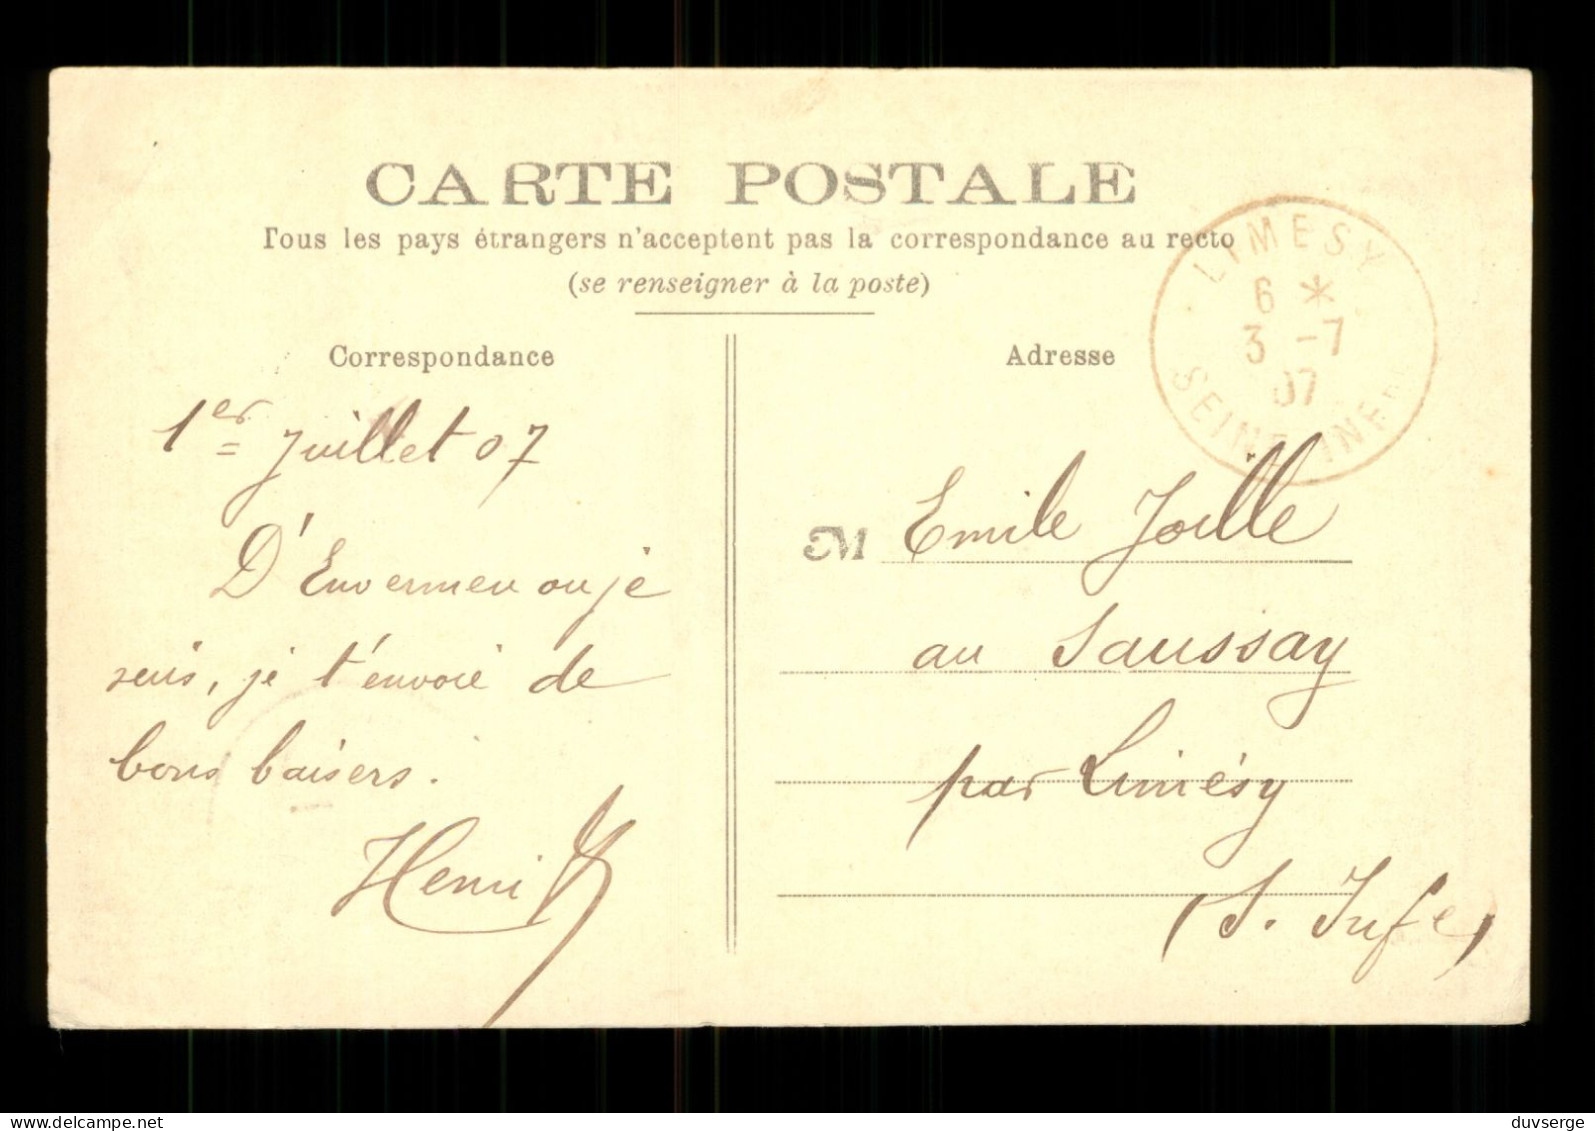 CARTE POSTALE
Tous les pays étrangers n'acceptent pas la correspondance au recto
(se renseigner à la poste)
Correspondance
1er Juillet 07
D'Envermeu ou je
suis, je t'envoie de
bons baisers.
Henri
Adresse
LIMESY
6 *
3 -7
07
SEINE INFRE
M Emile Joille
au Saussay
par Limésy
(S. Infe)
delcampe.net
duvserge